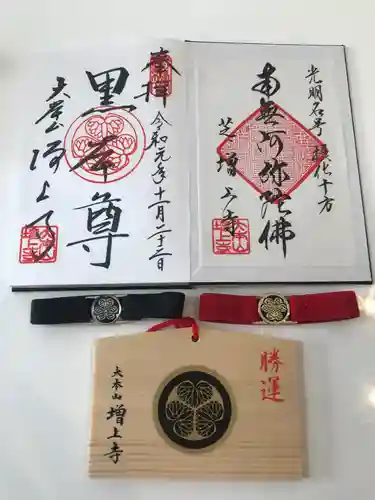 光明名号 摂化十方
南無阿弥陀佛
芝 増上寺
奉拝
令和元年十一月二十二日
黒本尊
大本山 増上寺
勝運
大本山
増上寺